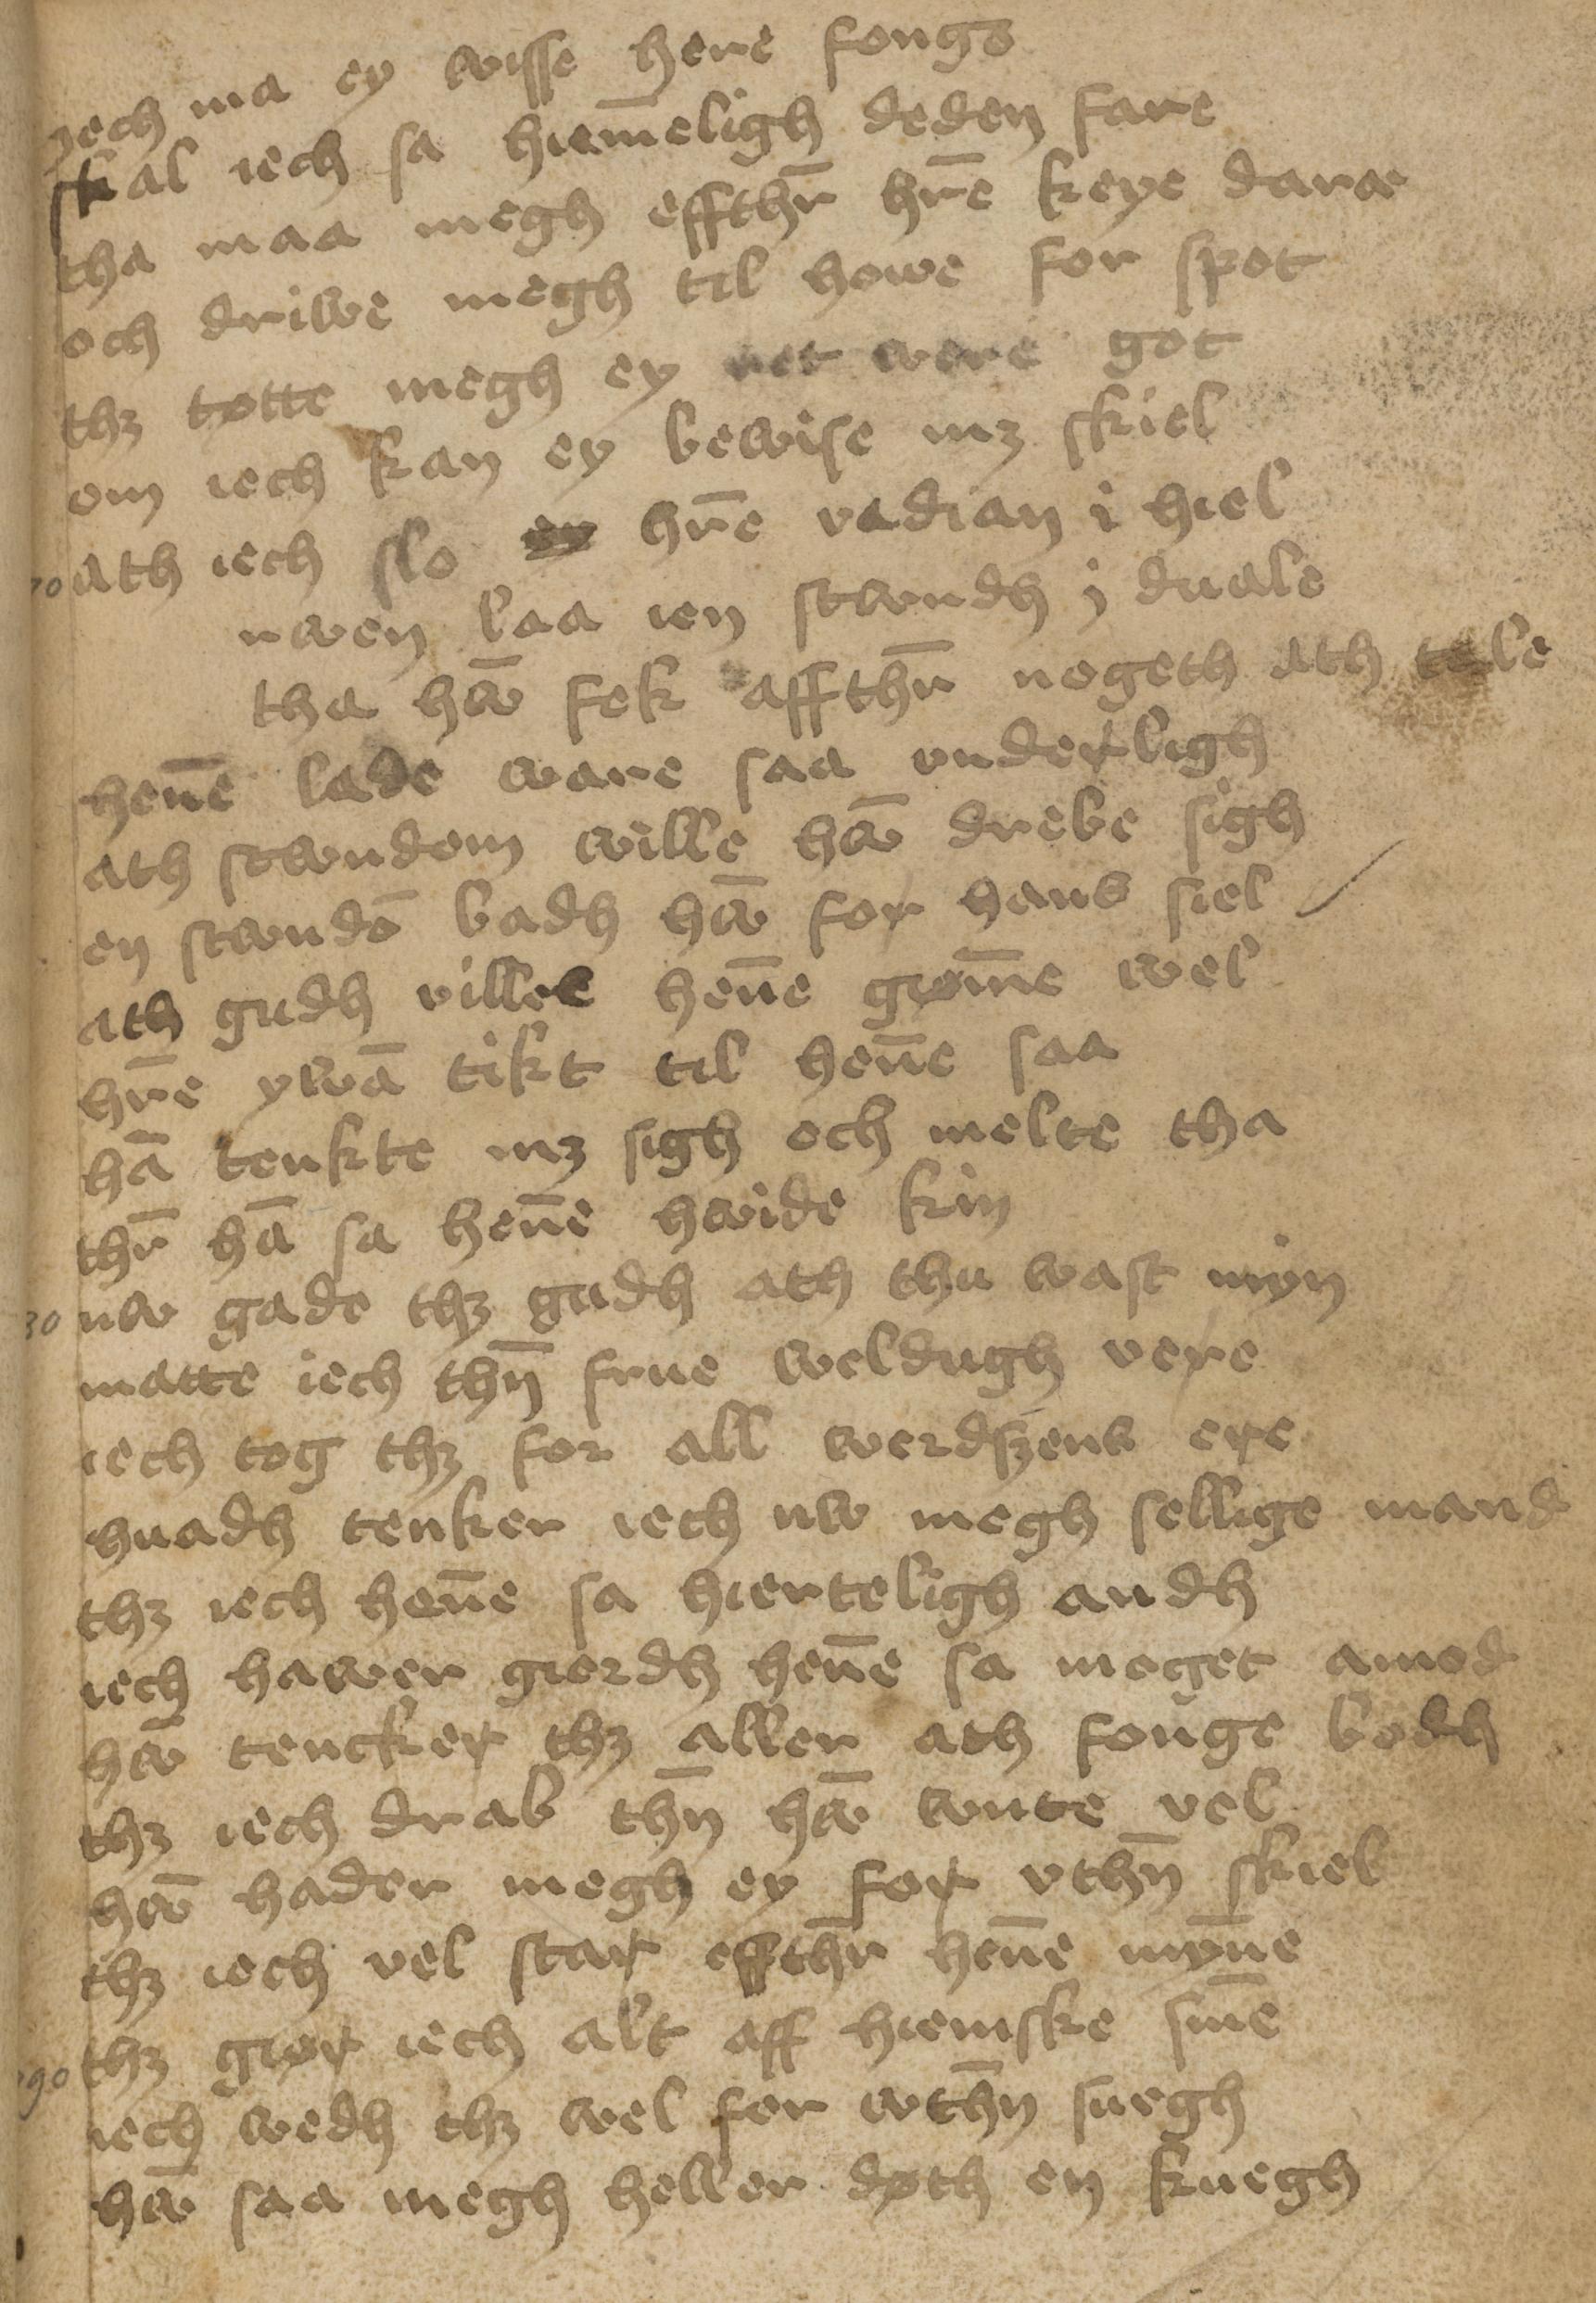 iech ma ey wisse here fongs
skal iech sa hiem̄eligh deden fare
tha maa megh effth̄r hr̄e keye daræ
och driwe megh til howe for spot
thꝫ totte megh ey ret were got
om iech kan ey bewise mꝫ skiel
70 ath iech slo ey hr̄e radian i hiel
nwen laa ien stwndh j duale
tha hw̄ fek affth̄r nogeth ath tale
hen̄e læde ware saa vnderligh
ath stwndom wille hw̄ drebe sigh
en stwndō badh hw̄ for hans siel
ath gudh ville hen̄e giøm̄e wel
hr̄e ywā tikt til hen̄e saa
hā tenkte mꝫ sigh och melte tha
th̄r hā sa hen̄e hwide kin
80 nw gade thꝫ gudh ath thu wast myn
matte iech th̄n frue weldugh vere
iech tog thꝫ for all werdszens ere
huadh tenker iech nw megh sellige mand
thꝫ iech hen̄e sa hierteligh andh
iech hawer giordh hen̄e sa meget amod
hw̄ tencker thꝫ aller ath fonge bodh
thꝫ iech drab th̄n hw̄ wnte vel
hw̄ hader megh ey for vth̄n skiel
thꝫ iech vel star effth̄r hen̄e myn̄e
thꝫ giør iech alt aff hiemske sin̄e
90 iech wedh thꝫ wel for wth̄n suegh
hw̄ saa megh heller døth en kuegh